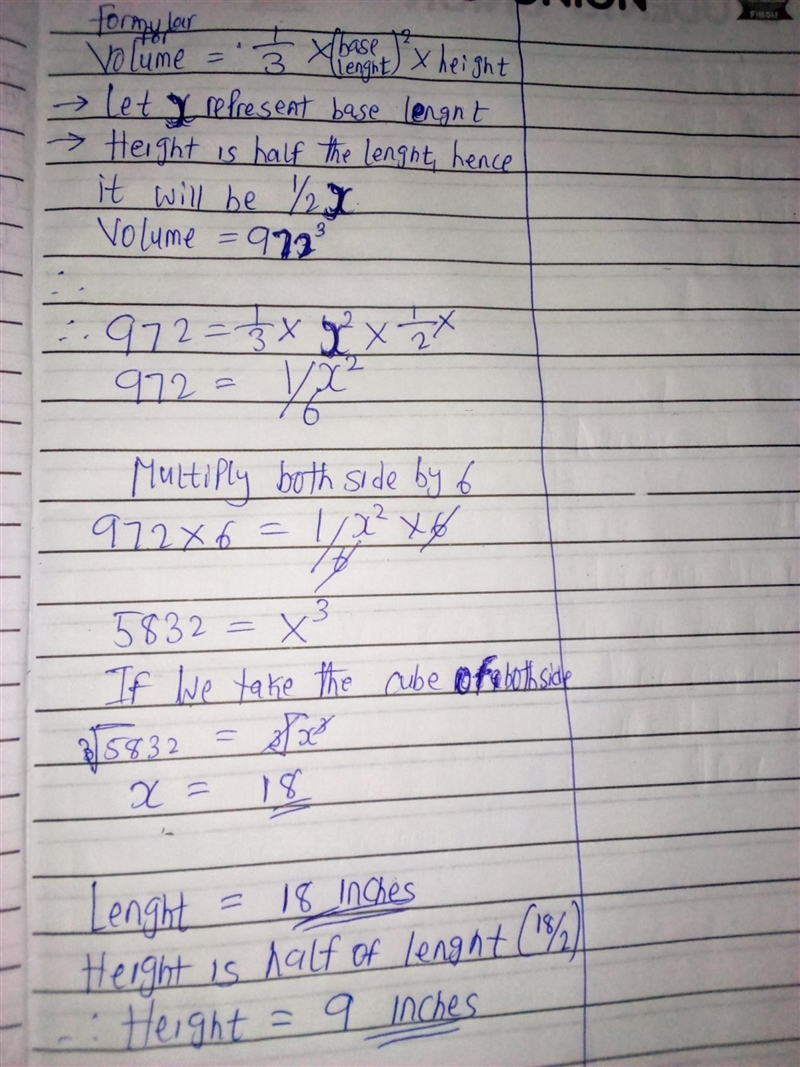 UNION
STUDENT
FISSU
Formular
for
Volume = 1/3 × (base lenght)² × height
→ Let x represent base lengnt
→ Height is half the lenght, hence
it will be 1/2 x
Volume = 972³
∴
∴ 972 = 1/3 × x² × 1/2 x
972 = 1/6 x²
Multiply both side by 6
972 × 6 = 1/6 x² × 6
5832 = x³
If we take the cube of both side
∛5832 = ∛x³
x = 18
Lenght = 18 inches
Height is half of lenght (18/2)
∴ Height = 9 inches